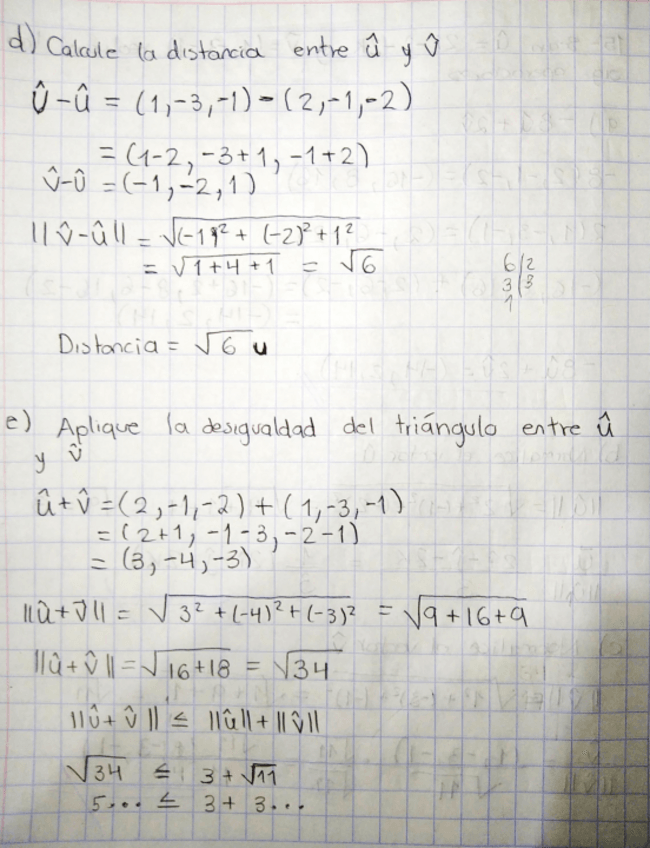 d) Calcule la distancia entre û y v̂
v̂ - û = (1,-3,-1) - (2,-1,-2)
= (1-2, -3+1, -1+2)
v̂-û = (-1,-2,1)
||v̂-û|| = √(-1)² + (-2)² + 1²
= √1+4+1 = √6
6|2
3|3
1
Distancia = √6 u
e) Aplique la desigualdad del triángulo entre û
y v̂
û+v̂ = (2,-1,-2) + (1,-3,-1)
= (2+1, -1-3, -2-1)
= (3,-4,-3)
||û+v̂|| = √3²+(-4)²+(-3)² = √9+16+9
||û+v̂|| = √16+18 = √34
||û+v̂|| ≤ ||û||+||v̂||
√34 ≤ 3+√11
5... ≤ 3+3...